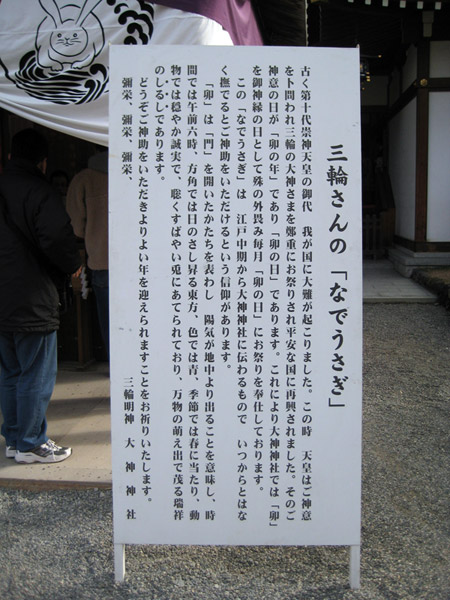 三輪さんの「なでうさぎ」
古く第十代崇神天皇の御代　我が国に大難が起こりました。この時　天皇はご神意
をト問われ三輪の大神さまを鄭重にお祭りされ平安な国に再興されました。そのご
神意の日が「卯の年」であり「卯の日」であります。これにより大神神社では「卯」
を御神縁の日として殊の外畏み毎月「卯の日」にお祭りを奉仕しております。
この「なでうさぎ」は　江戸中期から大神神社に伝わるもので　いつからとはな
く撫でるとご神助をいただけるという信仰があります。
「卯」は「門」を開いたかたちを表わし　陽気が地中より出ることを意味し、時
間では午前六時、方角では日のさし昇る東方、色では青、季節では春に当たり、動
物では穏やか誠実で、聡くすばやい兎にあてられており、万物の萌え出で茂る瑞祥
のしるしであります。
どうぞご神助をいただきよりよい年を迎えられますことをお祈りいたします。
彌栄、彌栄、彌栄、
三輪明神　大神神社